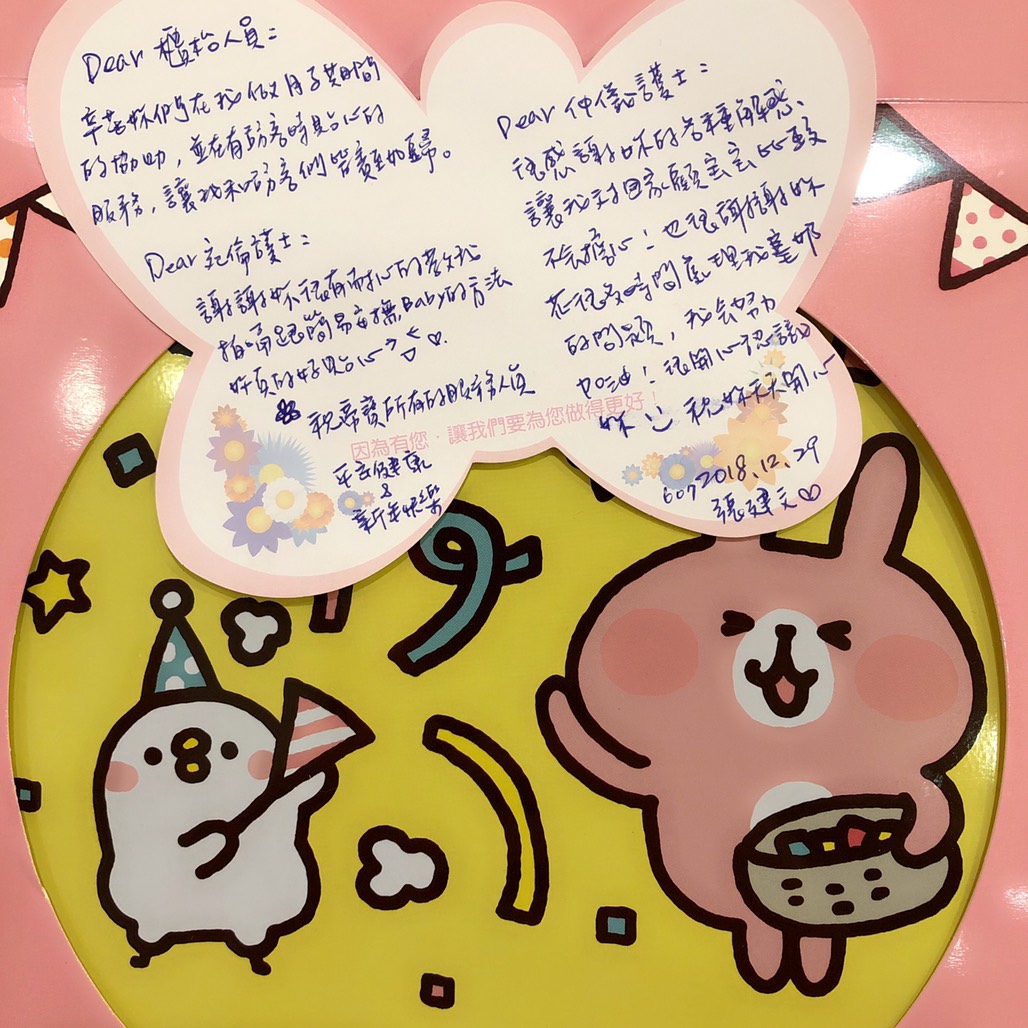 Dear 櫃枱人員：
辛苦妳們在我做月子期間
的協助，並在有訪客時貼心的
服務，讓我和訪客們皆賓至如歸。
Dear 宛倫護士：
謝謝妳很有耐心的教我
拍嗝跟簡易安撫Baby的方法
妳真的好貼心
祝馨寶所有的服務人員
平安健康
&
新年快樂
Dear 仲儀護士：
很感謝妳的各種解惑
讓我對回家顧寶寶比較
不會擔心！也很謝謝妳
花很多時間處理我塞奶
的問題，我會努力
加油！很開心認識
妳 祝妳天天開心
607 2018.12.29
張建文
因為有您，讓我們要為您做得更好！